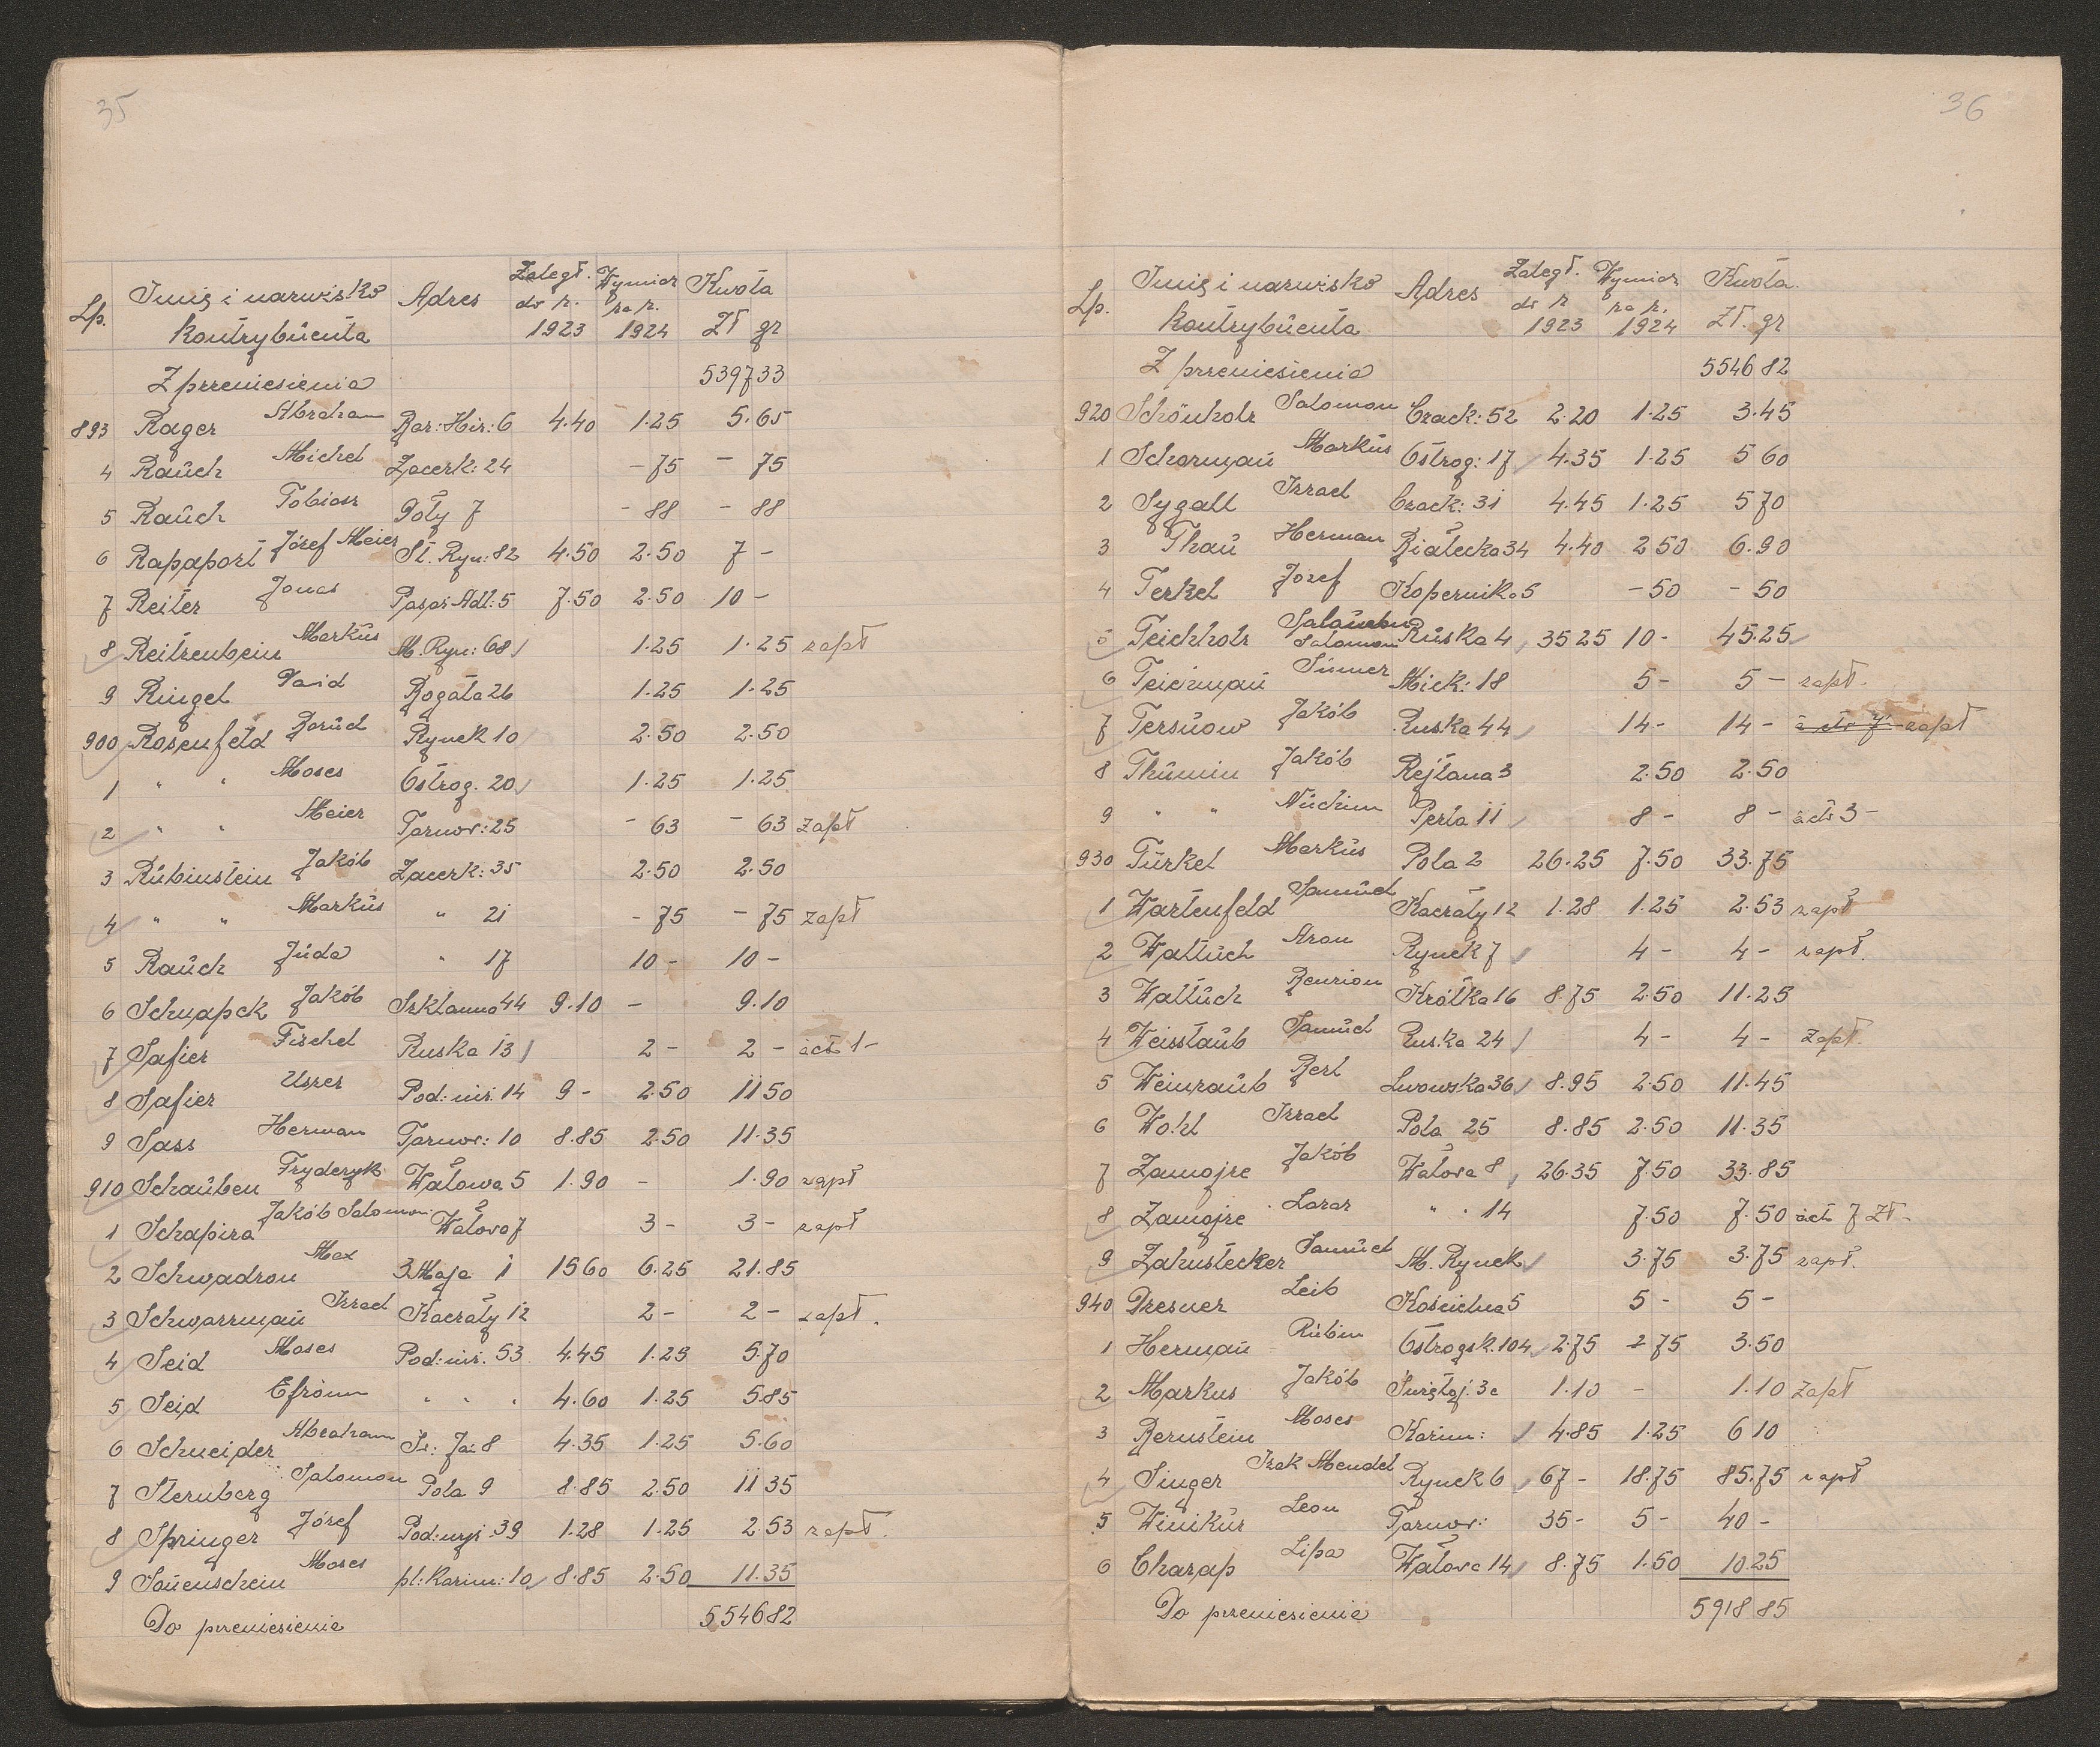 35
Lp. Imię i nazwisko kontrybuenta Adres Zaległ. do r. 1923 Wymiar za r. 1924 Kwota Zł gr
Z przeniesienia 5397 33
893 Rager Abraham Bar: Hir: 6 4.40 1.25 5.65
4 Rauch Michel Zacerk: 24 - 75 - 75
5 Rauch Tobiasz Poły 7 - 88 - 88
6 Rapaport Józef Meier St. Ryn: 82 4.50 2.50 7 -
7 Reiter Jonas Pasaż Adl: 5 7.50 2.50 10 -
8 Reitzenbein Markus M. Ryn: 68 1.25 1.25 zapł
9 Ringel Dawid Bogata 26 1.25 1.25
900 Rosenfeld Boruch Rynek 10 2.50 2.50
1 " " Moses Ostrog. 20 1.25 1.25
2 " " Meier Tarnow: 25 - 63 - 63 zapł
3 Rubinstein Jakób Zacerk: 35 2.50 2.50
4 " " Markus " 21 - 75 - 75 zapł
5 Rauch Juda " 17 10 - 10 -
6 Schnapek Jakób Szklanna 44 9.10 - 9.10
7 Safier Fischel Ruska 13 2 - 2 - àcto 1 -
8 Safier Uszer Pod: niż. 14 9 - 2.50 11 50
9 Sass Herman Tarnow: 10 8.85 2.50 11.35
910 Schauben Fryderyk Wałowa 5 1.90 - 1.90 zapł
1 Schapira Jakób Salomon Wałowa 7 3 - 3 - zapł
2 Schwadron Max 3 Maja 1 15 60 6.25 21.85
3 Schwarzman Izrael Kaczały 12 2 - 2 - zapł.
4 Seid Moses Pod: niż. 53 4.45 1.25 5.70
5 Seid Efroim " " " 4.60 1.25 5.85
6 Schneider Abraham Św: Jań 8 4.35 1.25 5.60
7 Sternberg Salomon Pola 9 8.85 2.50 11 35
8 Springer Józef Pod: wyż. 39 1.28 1.25 2.53 zapł.
9 Sonenschein Moses pl: Kazim: 10 8.85 2.50 11.35
Do przeniesienia 5546 82
36
Lp. Imię i nazwisko kontrybuenta Adres Zaległ. do r 1923 Wymiar za r. 1924 Kwota Zł. gr
Z przeniesienia 5546 82
920 Schönholz Salomon Czack: 52 2.20 1.25 3.45
1 Scharman Markus Ostrog: 17 4.35 1.25 5 60
2 Sygall Izrael Czack: 31 4.45 1.25 5 70
3 Thau Herman Białecka 34 4.40 2 50 6.90
4 Terkel Józef Kopernika 5 - 50 - 50
5 Teichholz Salomon Ruska 4 35 25 10 - 45.25
6 Teierman Simer Mick: 18 5 - 5 - zapł.
7 Tersnow Jakób Ruska 44 14 - 14 - à cto 7 - zapł
8 Thumin Jakób Rejtana 3 2.50 2.50
9 " " Nuchim Perla 11 8 - 8 - àcto 3 -
930 Türkel Markus Pola 2 26.25 7.50 33.75
1 Wartenfeld Samuel Kaczały 12 1.28 1.25 2.53 zapł
2 Wallach Aron Rynek 7 4 - 4 - zapł.
3 Wallach Benzion Krótka 16 8.75 2.50 11.25
4 Weisstaub Samuel Ruska 24 4 - 4 - zapł.
5 Weinraub Berl Lwowska 36 8.95 2.50 11.45
6 Wohl Izrael Pola 25 8.85 2.50 11.35
7 Zamojre Jakób Wałowa 8 26.35 7.50 33.85
8 Zamojre Lazar " " 14 7.50 7.50 àcto 7 Zł -
9 Zahnstecker Samuel M. Rynek 3.75 3.75 zapł.
940 Dresner Leib Kościelna 5 5 - 5 -
1 Herman Rubin Ostrogsk. 104 2.75 - 75 3.50
2 Markus Jakób Świętoj. 3a 1.10 - 1.10 zapł
3 Bernstein Moses Kazim: 4.85 1.25 6 10
4 Singer Izak Mendel Rynek 6 67 - 18.75 85.75 zapł
5 Winikur Leon Tarnow: 35 - 5 - 40 -
6 Charap Lipa Wałowa 14 8.75 1.50 10.25
Do przeniesienia 5918 85